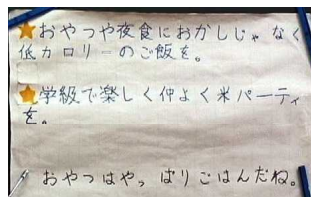 おやつや夜食におかしじゃなく
低カロリーのご飯を。
学級で楽しく仲よく米パーティ
を。
おやつはやっぱりごはんだね。